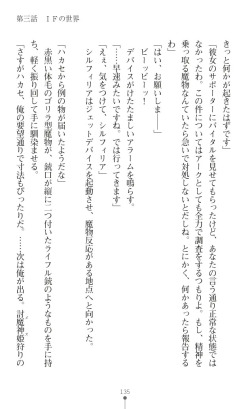 第三話　ＩＦの世界
きっと何かが起きたはずです」
「彼女のサポーターにバイタルを見せてもらったけれど、あなたの言う通り正常な状態では
なかったわ。この件についてはアークとしても全力で調査をするつもりよ。もし、精神を
乗っ取る魔物なんていたら急いで対処しないとだしね。とにかく、何かあったら報告する
わ」
「はい、お願いしま――」
ピーッピーッ！
デバイスがけたたましいアラームを鳴らす。
「……早速みたいですね。では行ってきます」
「ええ、気をつけて、シルフィリア」
シルフィリアはジェットデバイスを起動させ、魔物反応がある地点へと向かった。
「ハカセから例の物が届いたようだな」
赤黒い体毛のゴリラ型魔物が、銃口が縦に二つ付いたライフル銃のようなものを手に持
ち、軽く振り回して手に馴染ませる。
「さすがハカセ、俺の要望通りで寸法もぴったりだ。……次は俺が出る。討魔神姫狩りの
135